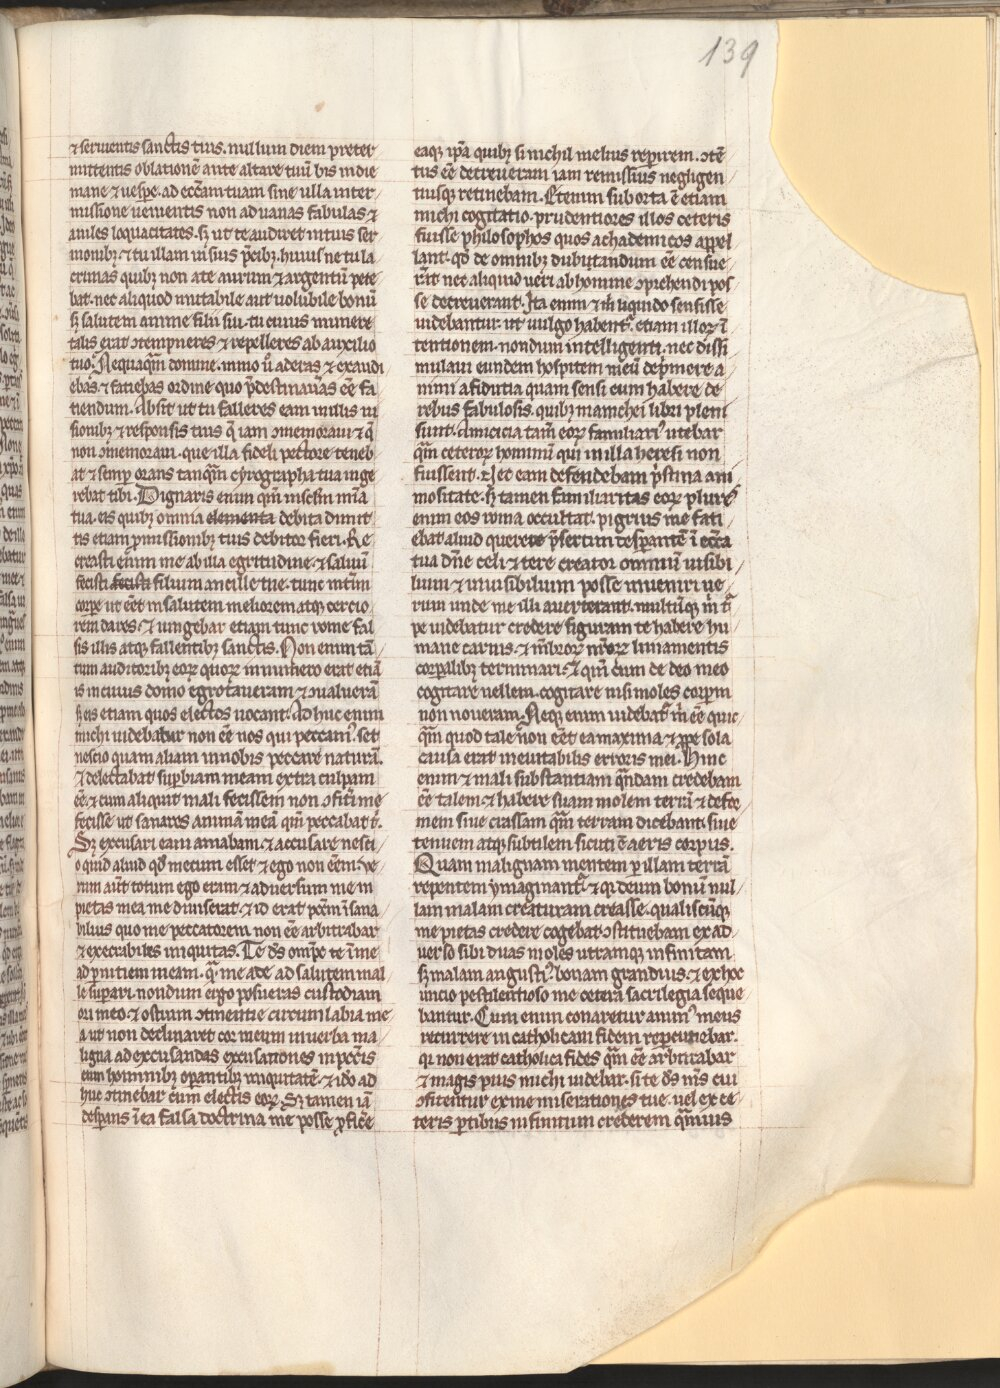 139
⁊ seruientis sanctis tuis. nullum diem preter
mittentis oblationē ante altare tuū bis in die
mane ⁊ uesꝑe. ad eccl̄iam tuam sine ulla inter
missione uenientis non ad uanas fabulas ⁊
aniles loquacitates. sꝫ ut te audiret in tuis ser
monibꝫ ⁊ tu illam in suis p̄cibꝫ. huius ne tu la
crimas quibꝫ non a te aurum ⁊ argentū pete
bat. nec aliquod mutabile aut uolubile bonū
sꝫ salutem anime filii sui. tu cuius munere
talis erat ↄtempneres ⁊ repelleres ab auxilio
tuo. Nequaqm̄ domine. immo ū aderas ⁊ exaudi
ebas. ⁊ faciebas ordine quo p̄destinauas eē fa
ciendum. Absit ut tu falleres eam in illis ui
sionibꝫ ⁊ responsis tuis q̄ iam ↄmemoraui ⁊ q̄
non ↄmemoraui. que illa fideli pectore teneb
at ⁊ semꝑ orans tanqm̄ cyrographa tua inge
rebat tibi. Dignaris enim qm̄ in sc̄lm mīa
tua. eis quibꝫ omnia elementa debita dimit
tis etiam ꝓmissionibꝫ tuis debitor fieri. Re
creasti enim me ab illa egritudine. ⁊ saluū
fecisti fecisti filium ancille tue. tunc int̄im
corꝑe ut eēt in salutem meliorem atqꝫ cercio
rem dares. ⁊ iungebar etiam tunc rome fal
sis illis atqꝫ fallentibꝫ sanctis. Non enim tā
tum auditoribꝫ eoꝝ quoꝝ in numero erat etiā
is in cuius domo egrotaueram ⁊ ↄualuerā
sꝫ eis etiam quos electos uocant. Adhuc enim
michi uidebatur non eē nos qui peccamꝰ. set
nescio quam aliam in nobis peccare naturā.
⁊ delectabat suꝑbiam meam extra culpam
eē. ⁊ cum aliquit mali fecissem non ↄfit̄i me
fecisse ut sanares animā meā qm̄ peccabat t̄.
Sꝫ excusari eam amabam. ⁊ accusare nesci
o quid aliud qd̄ mecum esset ⁊ ego non eēm. Ve
rum aūt totum ego eram ⁊ aduersum me im
pietas mea me diuiserat. ⁊ id erat pcc̄m īsana
bilius quo me peccatorem non eē arbitrabar
⁊ execrabiles iniquitas. Te ds̄ omp̄e te ī me
ad ꝑnitiem meam. q̄ me a te ad salutem mal
le suꝑari. nondum ergo posueras custodiam
ori meo. ⁊ ostium ↄtinentie circum labia me
a ut non declinaret cor meum in uerba ma
ligna ad excusandas excusationes in pcc̄is
cum hominibꝫ oꝑantibꝫ iniquitatē. ⁊ ido ad
huc ↄtinebar cum electis eoꝝ. Sꝫ tamen iā
desꝑans ī ea falsa doctrina me posse ꝓfic̄e
eaqꝫ ip̄a quibꝫ si nichil melius reꝑirem. ↄtē
tus eē decreueram iam remissius negligen
tiusqꝫ retinebam. Etenim suborta ē etiam
michi cogitatio. prudentiores illos ceteris
fuisse philosophos quos achademicos appel
lant. qd̄ de omnibꝫ dubitandum eē censue
rāt nec aliquid ueri ab homine ↄprehendi pos
se decreuerant. Ita enim ⁊ m̄ liquido sensisse
uidebantur. ut uulgo habent᷑. etiam illoꝝ ī
tentionem. nondum intelligenti. nec dissi
mulaui eundem hospitem meū dep̄mere a
nimi a fidutia quam sensi eum habere de
rebus fabulosis. quibꝫ manichei libri pleni
sunt. Amicicia tam̄ eoꝝ familiariꝰ utebar
qm̄ ceteroꝝ hominū qui in illa heresi non
fuissent. Nec eam defendebam p̄stina ani
mositate. sꝫ tamen familiaritas eoꝝ plures
enim eos roma occultat. pigrius me faci
ebat aliud querere p̄sertim desꝑantē ī eccl̄a
tua dn̄e celi ⁊ tere creator omniū uisibi
lium ⁊ inuisibilium posse inueniri ue
rum unde me illi auerterant. multūqꝫ m̄ t᷑
pe uidebatur credere figuram te habere hu
mane carnis. ⁊ mēbroꝝ nr̄oꝝ liniamentis
corꝑalibꝫ terminari. ⁊ qm̄ cum de deo meo
cogitare uellem. cogitare nisi moles corꝑum
non noueram. Neqꝫ enim uidebat᷑ m̄ eē quic
qm̄ quod tale non eēt ea maxima ⁊ ꝓpe sola
causa erat ineuitabilis erroris mei. Hinc
enim ⁊ mali substantiam qn̄dam credebam
eē talem. ⁊ habere suam molem tet̄rā ⁊ defor
mem siue crassam qm̄ terram dicebant. siue
tenuem atqꝫ subtilem sicuti ē aeris corpus.
Quam malignam mentem ꝑ illam terrā
repentem ymaginant᷑. ⁊ qi deum bonū nul
lam malam creaturam creasse. qualiscūqꝫ
me pietas credere cogebat. ↄstituebam ex ad
uerso sibi duas moles utramqꝫ infinitam
sꝫ malam angustiꝰ. bonam grandius. ⁊ ex hoc
inicio pestilentioso me cetera sacrilegia seque
bantur. Cum enim conaretur animꝰ meus
recurrere in catholicam fidem repercutiebar.
qi non erat catholica fides qm̄ eē arbitrabar
⁊ magis pius michi uidebar. si te ds̄ ms̄ cui
ↄfitentur ex me miserationes tue. uel ex ce
teris ꝑtibus infinitum crederem qm̄uis